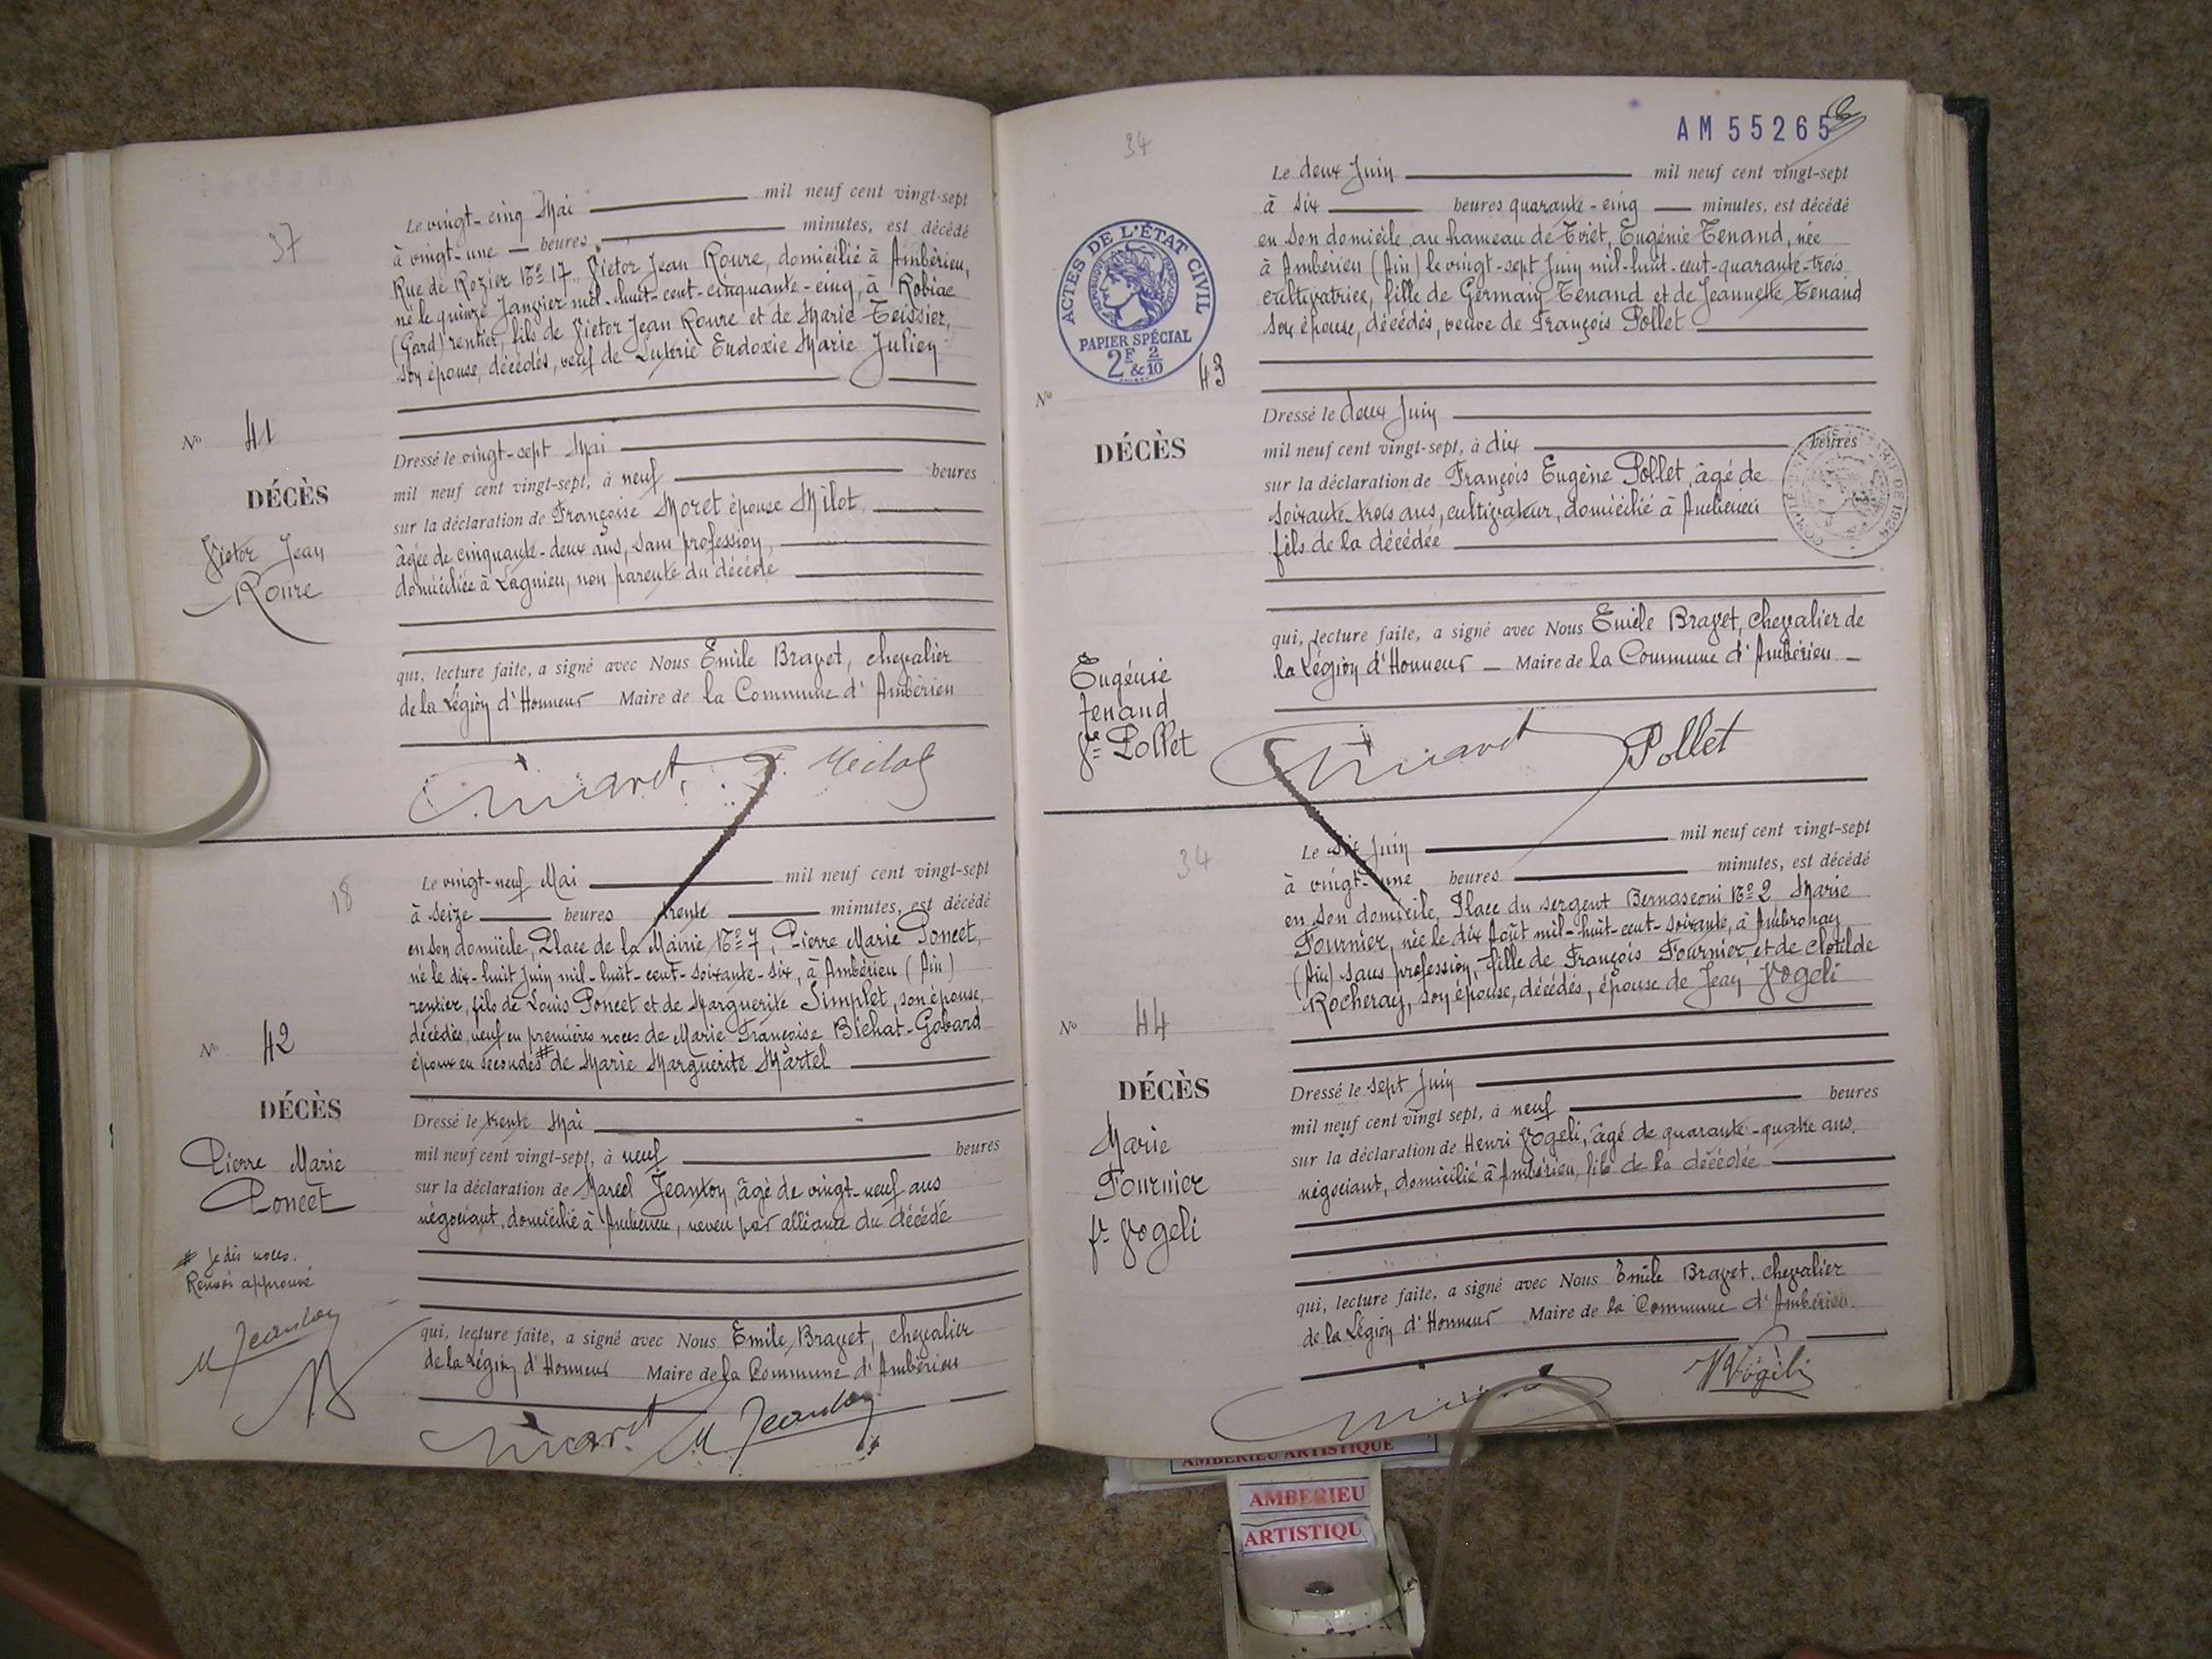 37
Le vingt-cinq Mai mil neuf cent vingt-sept
à vingt-une heures, minutes, est décédé
Rue de Rozier No 17 Victor Jean Roure, domicilié à Ambérieu,
né le quinze Janvier mil-huit-cent-cinquante-cinq, à Robiac
(Gard) rentier, fils de Victor Jean Roure et de Marie Teissier,
son épouse, décédés, veuf de Eudoxie Marie Julien
No 41
DÉCÈS
Victor Jean
Roure
Dressé le vingt-sept Mai
mil neuf cent vingt-sept, à neuf heures
sur la déclaration de Françoise Moret épouse Milot,
âgée de cinquante-deux ans, sans profession,
domiciliée à Lagnieu, non parente du décédé
qui, lecture faite, a signé avec Nous Emile Bravet, chevalier
de la Légion d'Honneur Maire de la Commune d'Ambérieu
18
Le vingt-neuf Mai mil neuf cent vingt-sept
à seize heures trente minutes, est décédé
en son domicile, Place de la Mairie No 7, Pierre Marie Poncet,
né le dix-huit Juin mil-huit-cent-soixante-six, à Ambérieu (Ain)
rentier, fils de Louis Poncet et de Marguerite Simplet, son épouse,
décédés, veuf en premières noces de Marie Françoise Bichat-Gobard
époux en secondes # de Marie Marguerite Martel
No 42
DÉCÈS
Pierre Marie
Poncet
# Je dis noces.
Renvoi approuvé
M Jeanton
Dressé le trente Mai
mil neuf cent vingt-sept, à neuf heures
sur la déclaration de Marcel Jeanton, âgé de vingt-neuf ans
négociant, domicilié à Ambérieu, neveu par alliance du décédé
qui, lecture faite, a signé avec Nous Emile Bravet, chevalier
de la Légion d'Honneur Maire de la Commune d'Ambérieu
M Jeanton
34
AM 55265
Le deux Juin mil neuf cent vingt-sept
à six heures quarante-cinq minutes, est décédé
en son domicile au hameau de Tiret, Eugénie Tenand, née
à Ambérieu (Ain) le vingt-sept Juin mil-huit-cent-quarante-trois
cultivatrice, fille de Germain Tenand et de Jeannette Tenand
son épouse, décédés, veuve de François Pollet
ACTES DE L'ÉTAT CIVIL
RÉPUBLIQUE FRANÇAISE
PAPIER SPÉCIAL
2F & 2/10
No 43
DÉCÈS
Eugénie
Tenand
Ve Pollet
Dressé le deux Juin
mil neuf cent vingt-sept, à dix heures
sur la déclaration de François Eugène Pollet, âgé de
soixante-trois ans, cultivateur, domicilié à Ambérieu
fils de la décédée
qui, lecture faite, a signé avec Nous Emile Bravet, chevalier de
la Légion d'Honneur Maire de la Commune d'Ambérieu
Pollet
34
Le six Juin mil neuf cent vingt-sept
à vingt-une heures minutes, est décédé
en son domicile, Place du sergent Bernasconi No 2 Marie
Fournier, née le dix Août mil-huit-cent-soixante, à Ambronay
(Ain) sans profession, fille de François Fournier et de Clotilde
Rocheray, son épouse, décédés, épouse de Jean Vogeli
No 44
DÉCÈS
Marie
Fournier
fe Vogeli
Dressé le sept Juin
mil neuf cent vingt sept, à neuf heures
sur la déclaration de Henri Vogeli, âgé de quarante-quatre ans,
négociant, domicilié à Ambérieu, fils de la décédée
qui, lecture faite, a signé avec Nous Emile Bravet, chevalier
de la Légion d'Honneur Maire de la Commune d'Ambérieu
HVögeli
AMBERIEU ARTISTIQUE
AMBERIEU
ARTISTIQU